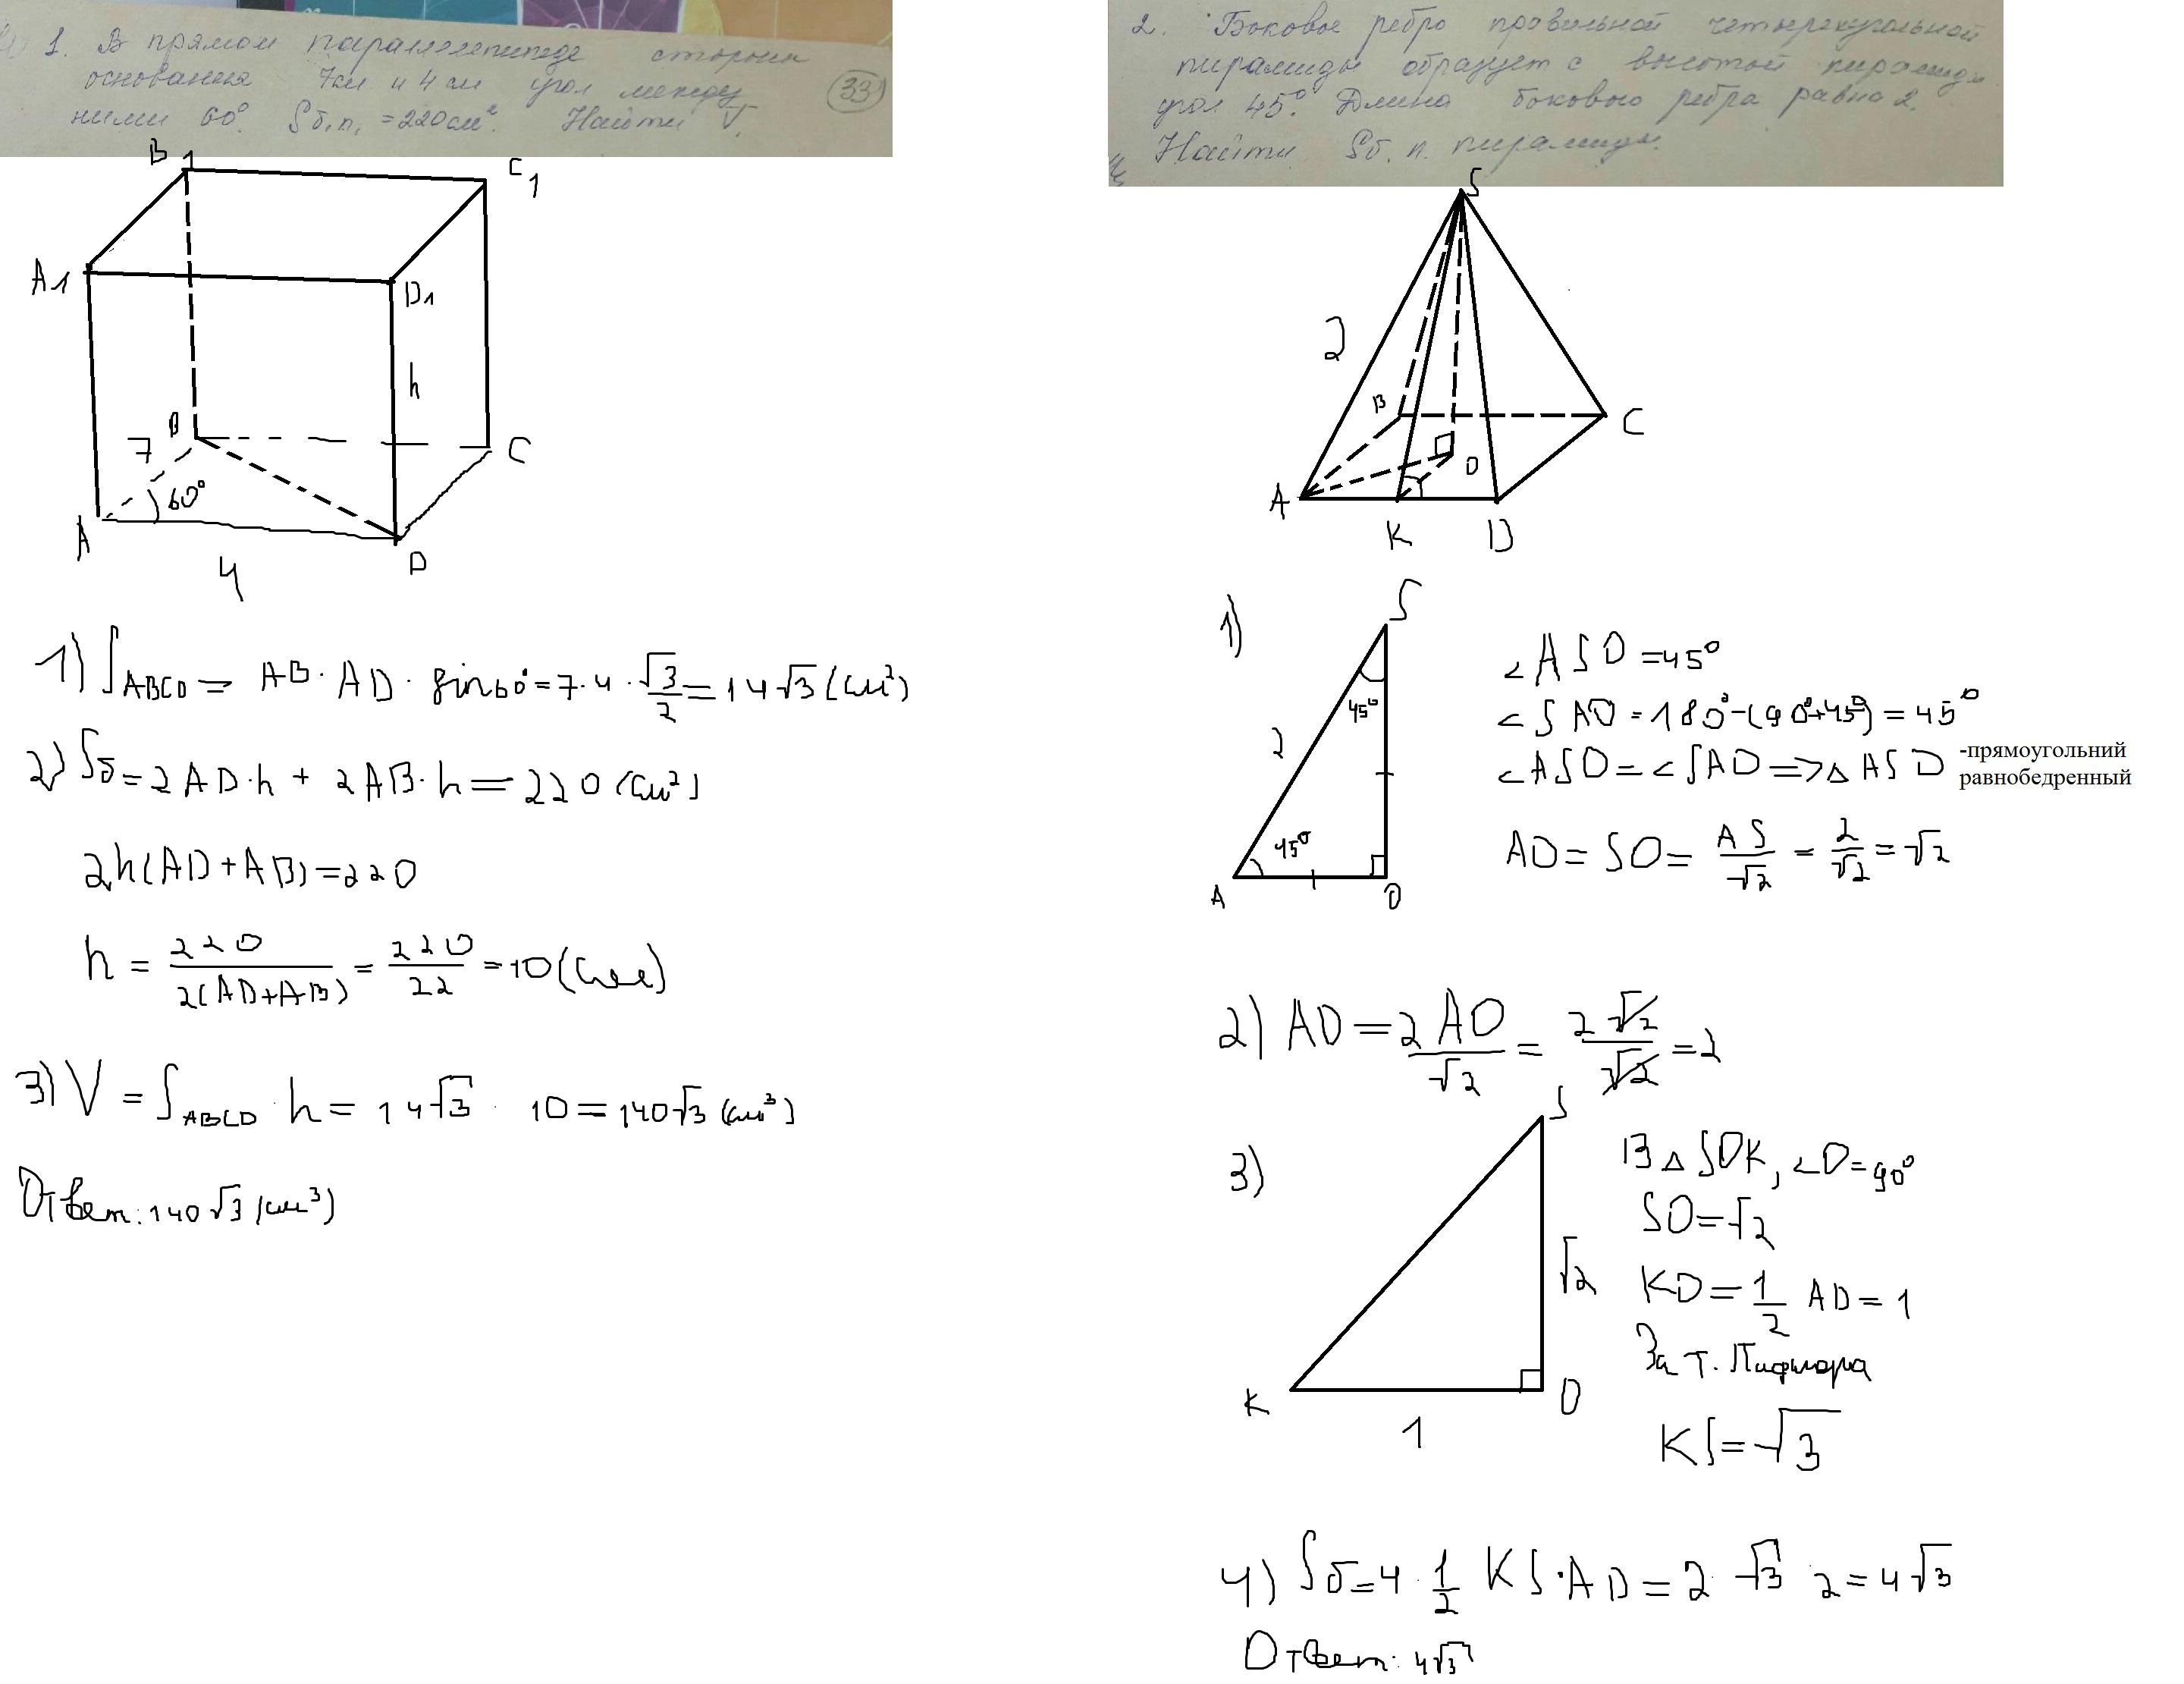 1. В прямом параллелепипеде стороны
основания 7см и 4 см угол между
ними 60°. Sб.п. = 220см². Найти V.
33
B1
C1
A1
D1
h
B
7
C
60°
A
D
4
1) SABCD = AB · AD · sin60° = 7 · 4 · √3/2 = 14√3 (см²)
2) Sб = 2AD·h + 2AB·h = 220 (см²)
2h(AD + AB) = 220
h = 220/2(AD+AB) = 220/22 = 10 (см)
3) V = SABCD · h = 14√3 · 10 = 140√3 (см³)
Ответ: 140√3 (см³)
2. Боковое ребро правильной четырехугольной
пирамиды образует с высотой пирамиды
угол 45°. Длина бокового ребра равна 2.
Найти Sб.п. пирамиды.
S
2
B
C
O
A
K
D
1)
S
45°
2
45°
A
O
∠ASO = 45°
∠SAO = 180° - (90° + 45°) = 45°
∠ASO = ∠SAO => △ASO -прямоугольний
равнобедренный
AO = SO = AS/√2 = 2/√2 = √2
2) AD = 2AO/√2 = 2√2/√2 = 2
3)
S
√2
K
O
1
В △SOK, ∠O = 90°
SO = √2
KO = 1/2 AD = 1
За т. Пифагора
KS = √3
4) Sб = 4 · 1/2 KS · AD = 2 · √3 · 2 = 4√3
Ответ: 4√3